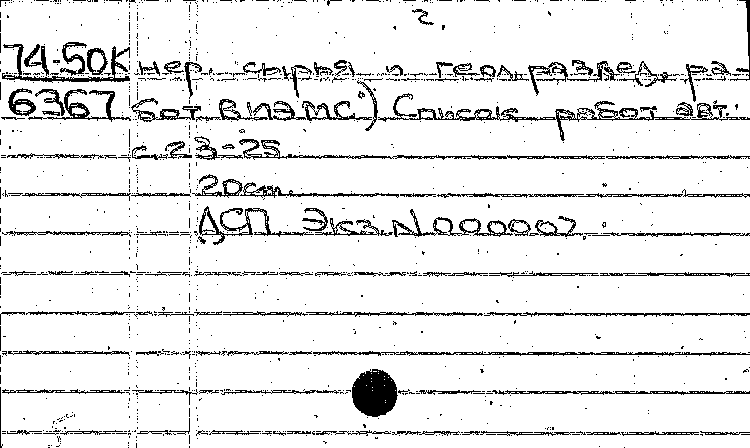 2.
74-50К нер. сырья и геол. развед. ра-
6367 бот ВИЭМС.) Список работ авт.
с. 23-25
20 см.
ДСП. Экз. N 000007